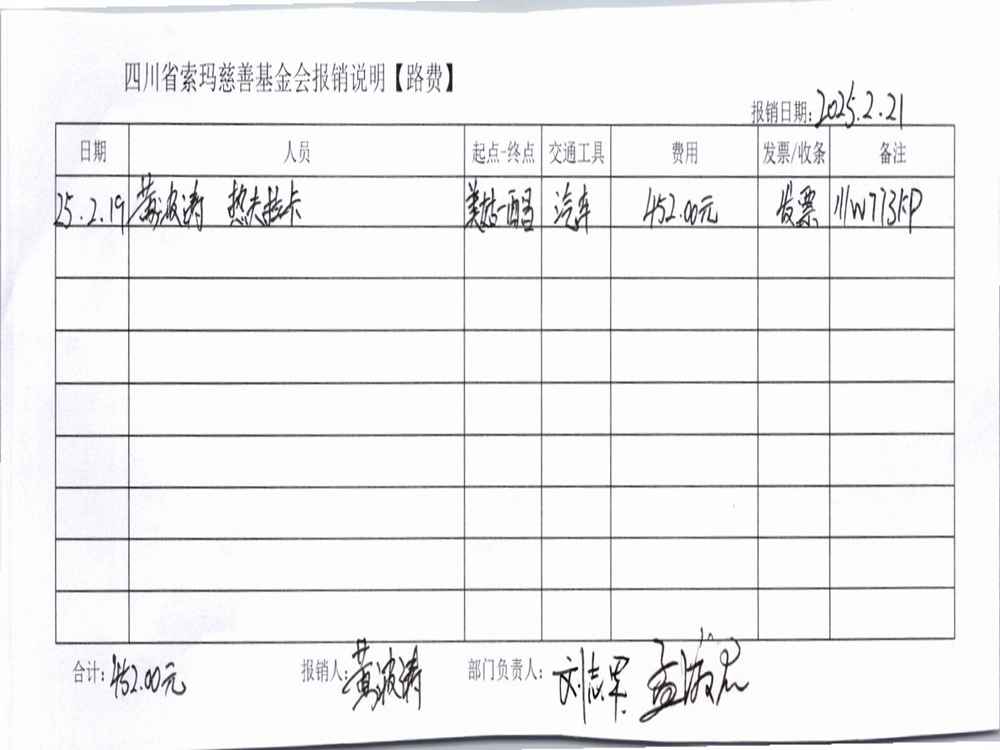 四川省索玛慈善基金会报销说明【路费】
报销日期：2025.2.21
日期 人员 起点-终点 交通工具 费用 发票/收条 备注
25.2.19 黄波涛 热夫拉卡 美姑-西昌 汽车 452.00元 发票 川W713KP
合计：452.00元 报销人：黄波涛 部门负责人：刘志军